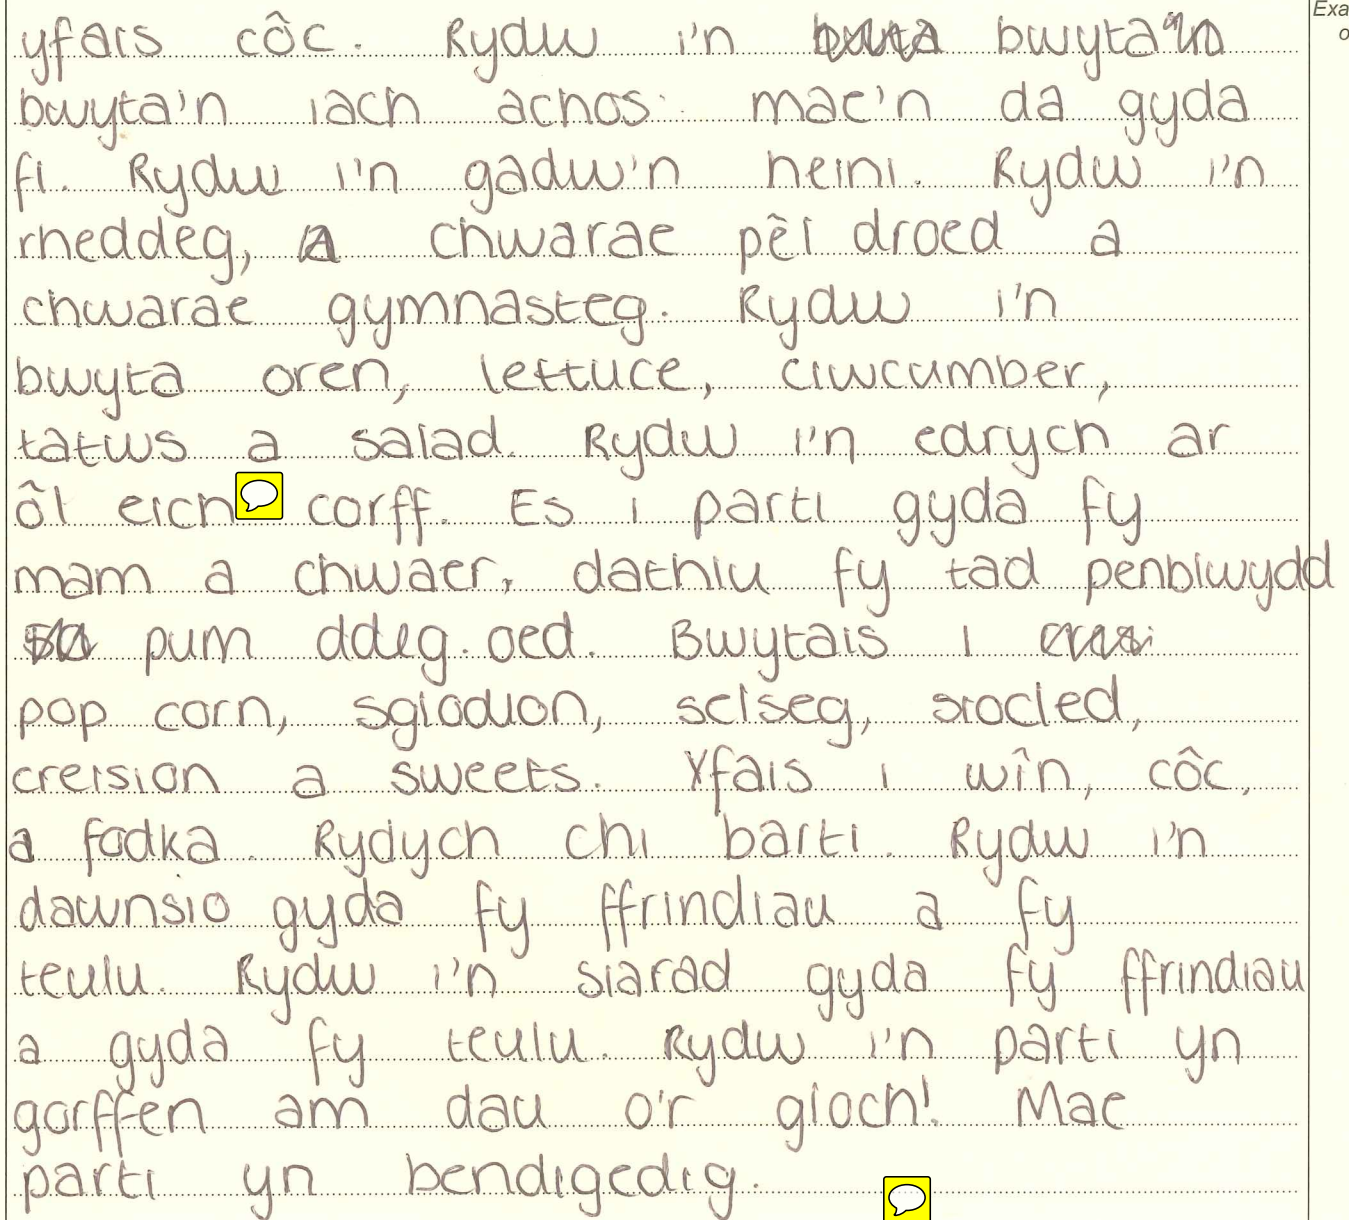 yfais côc. Rydw i'n bwyta'n
bwyta'n iach achos mae'n da gyda
fi. Rydw i'n gadw'n heini. Rydw i'n
rheddeg, a chwarae pêl droed a
chwarae gymnasteg. Rydw i'n
bwyta oren, lettuce, ciwcumber,
tatws a salad. Rydw i'n edrych ar
ôl eich corff. Es i parti gyda fy
mam a chwaer, dathlu fy tad penblwydd
pum ddeg oed. Bwytais i
pop corn, sglodion, selseg, siocled,
creision a sweets. Yfais i wîn, côc,
a fodka. Rydych chi barti. Rydw i'n
dawnsio gyda fy ffrindiau a fy
teulu. Rydw i'n siarad gyda fy ffrindiau
a gyda fy teulu. Rydw i'n parti yn
gorffen am dau o'r gloch! Mae
parti yn bendigedig.